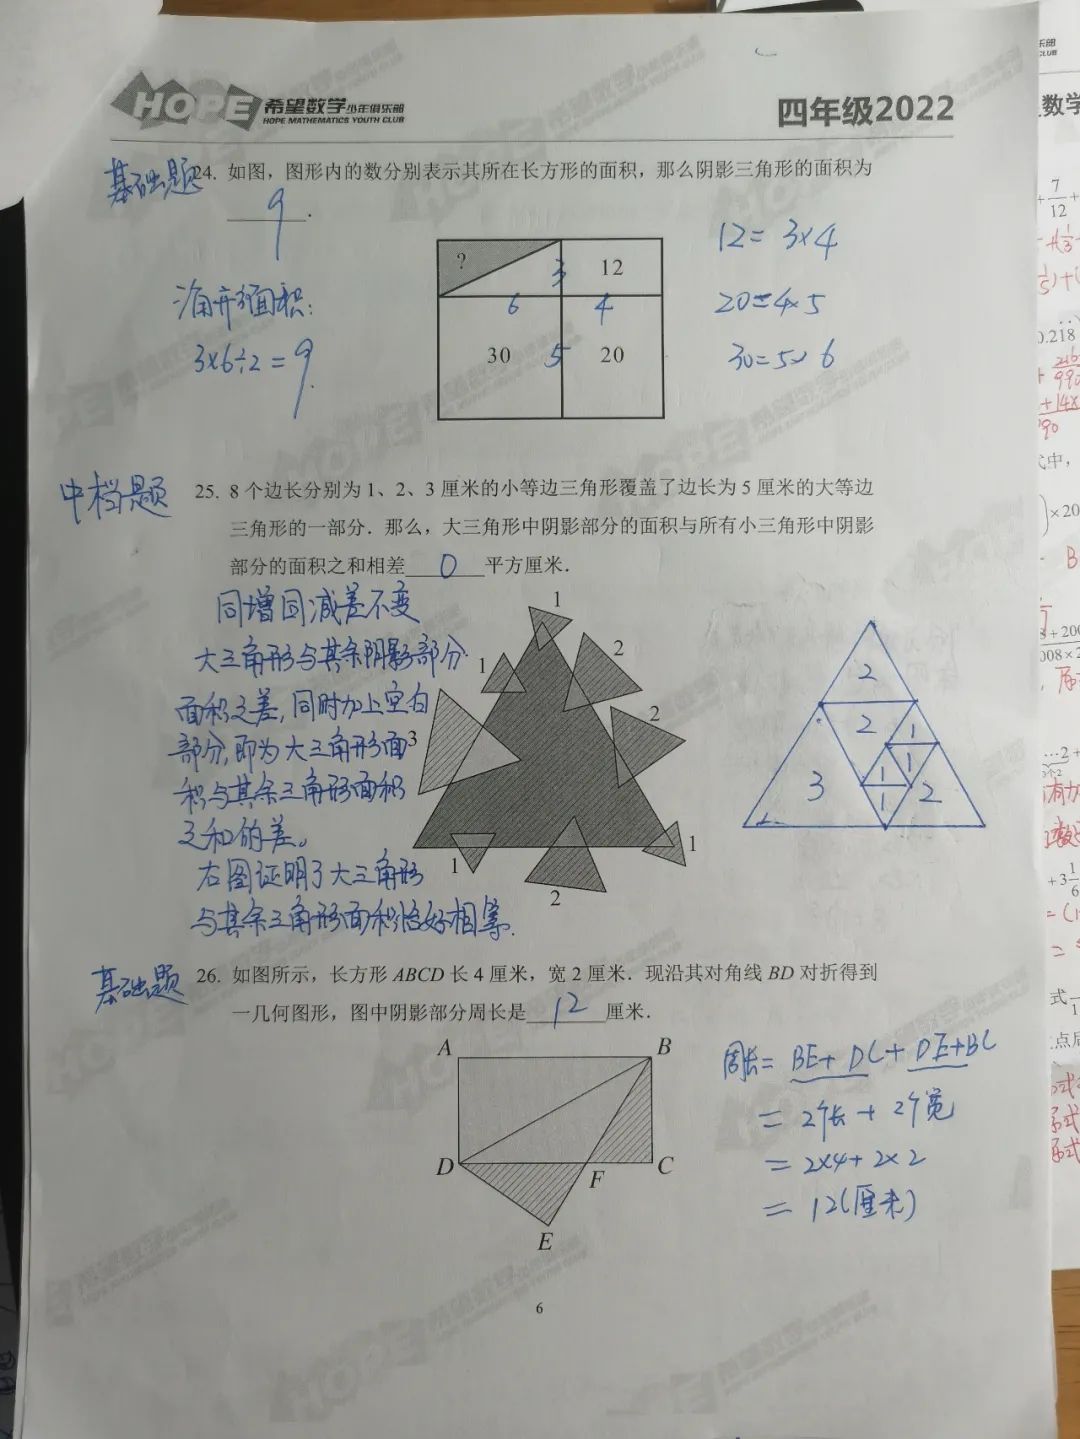 HOPE 希望数学少年俱乐部
HOPE MATHEMATICS YOUTH CLUB
四年级2022
基础题
24. 如图，图形内的数分别表示其所在长方形的面积，那么阴影三角形的面积为
9.
?
3
12
6
4
30
5
20
12= 3×4
20=4×5
30=5×6
3×6÷2=9.
中档题
25. 8 个边长分别为 1、2、3 厘米的小等边三角形覆盖了边长为 5 厘米的大等边
三角形的一部分．那么，大三角形中阴影部分的面积与所有小三角形中阴影
部分的面积之和相差 0 平方厘米．
同增同减差不变
大三角形与其余阴影部分
面积之差，同时加上空白
部分，即为大三角形面
积与其余三角形面积
之和的差。
右图证明了大三角形
与其余三角形面积恰好相等.
1
1
2
2
3
1
2
1
2
2
1
1
1
1
3
2
基础题
26. 如图所示，长方形 ABCD 长 4 厘米，宽 2 厘米．现沿其对角线 BD 对折得到
一几何图形，图中阴影部分周长是 12 厘米．
A
B
D
F
C
E
周长= BE+DC+DE+BC
= 2个长+2个宽
= 2×4+2×2
= 12(厘米)
6
数学
7
12
0.218
×20
B
008×2